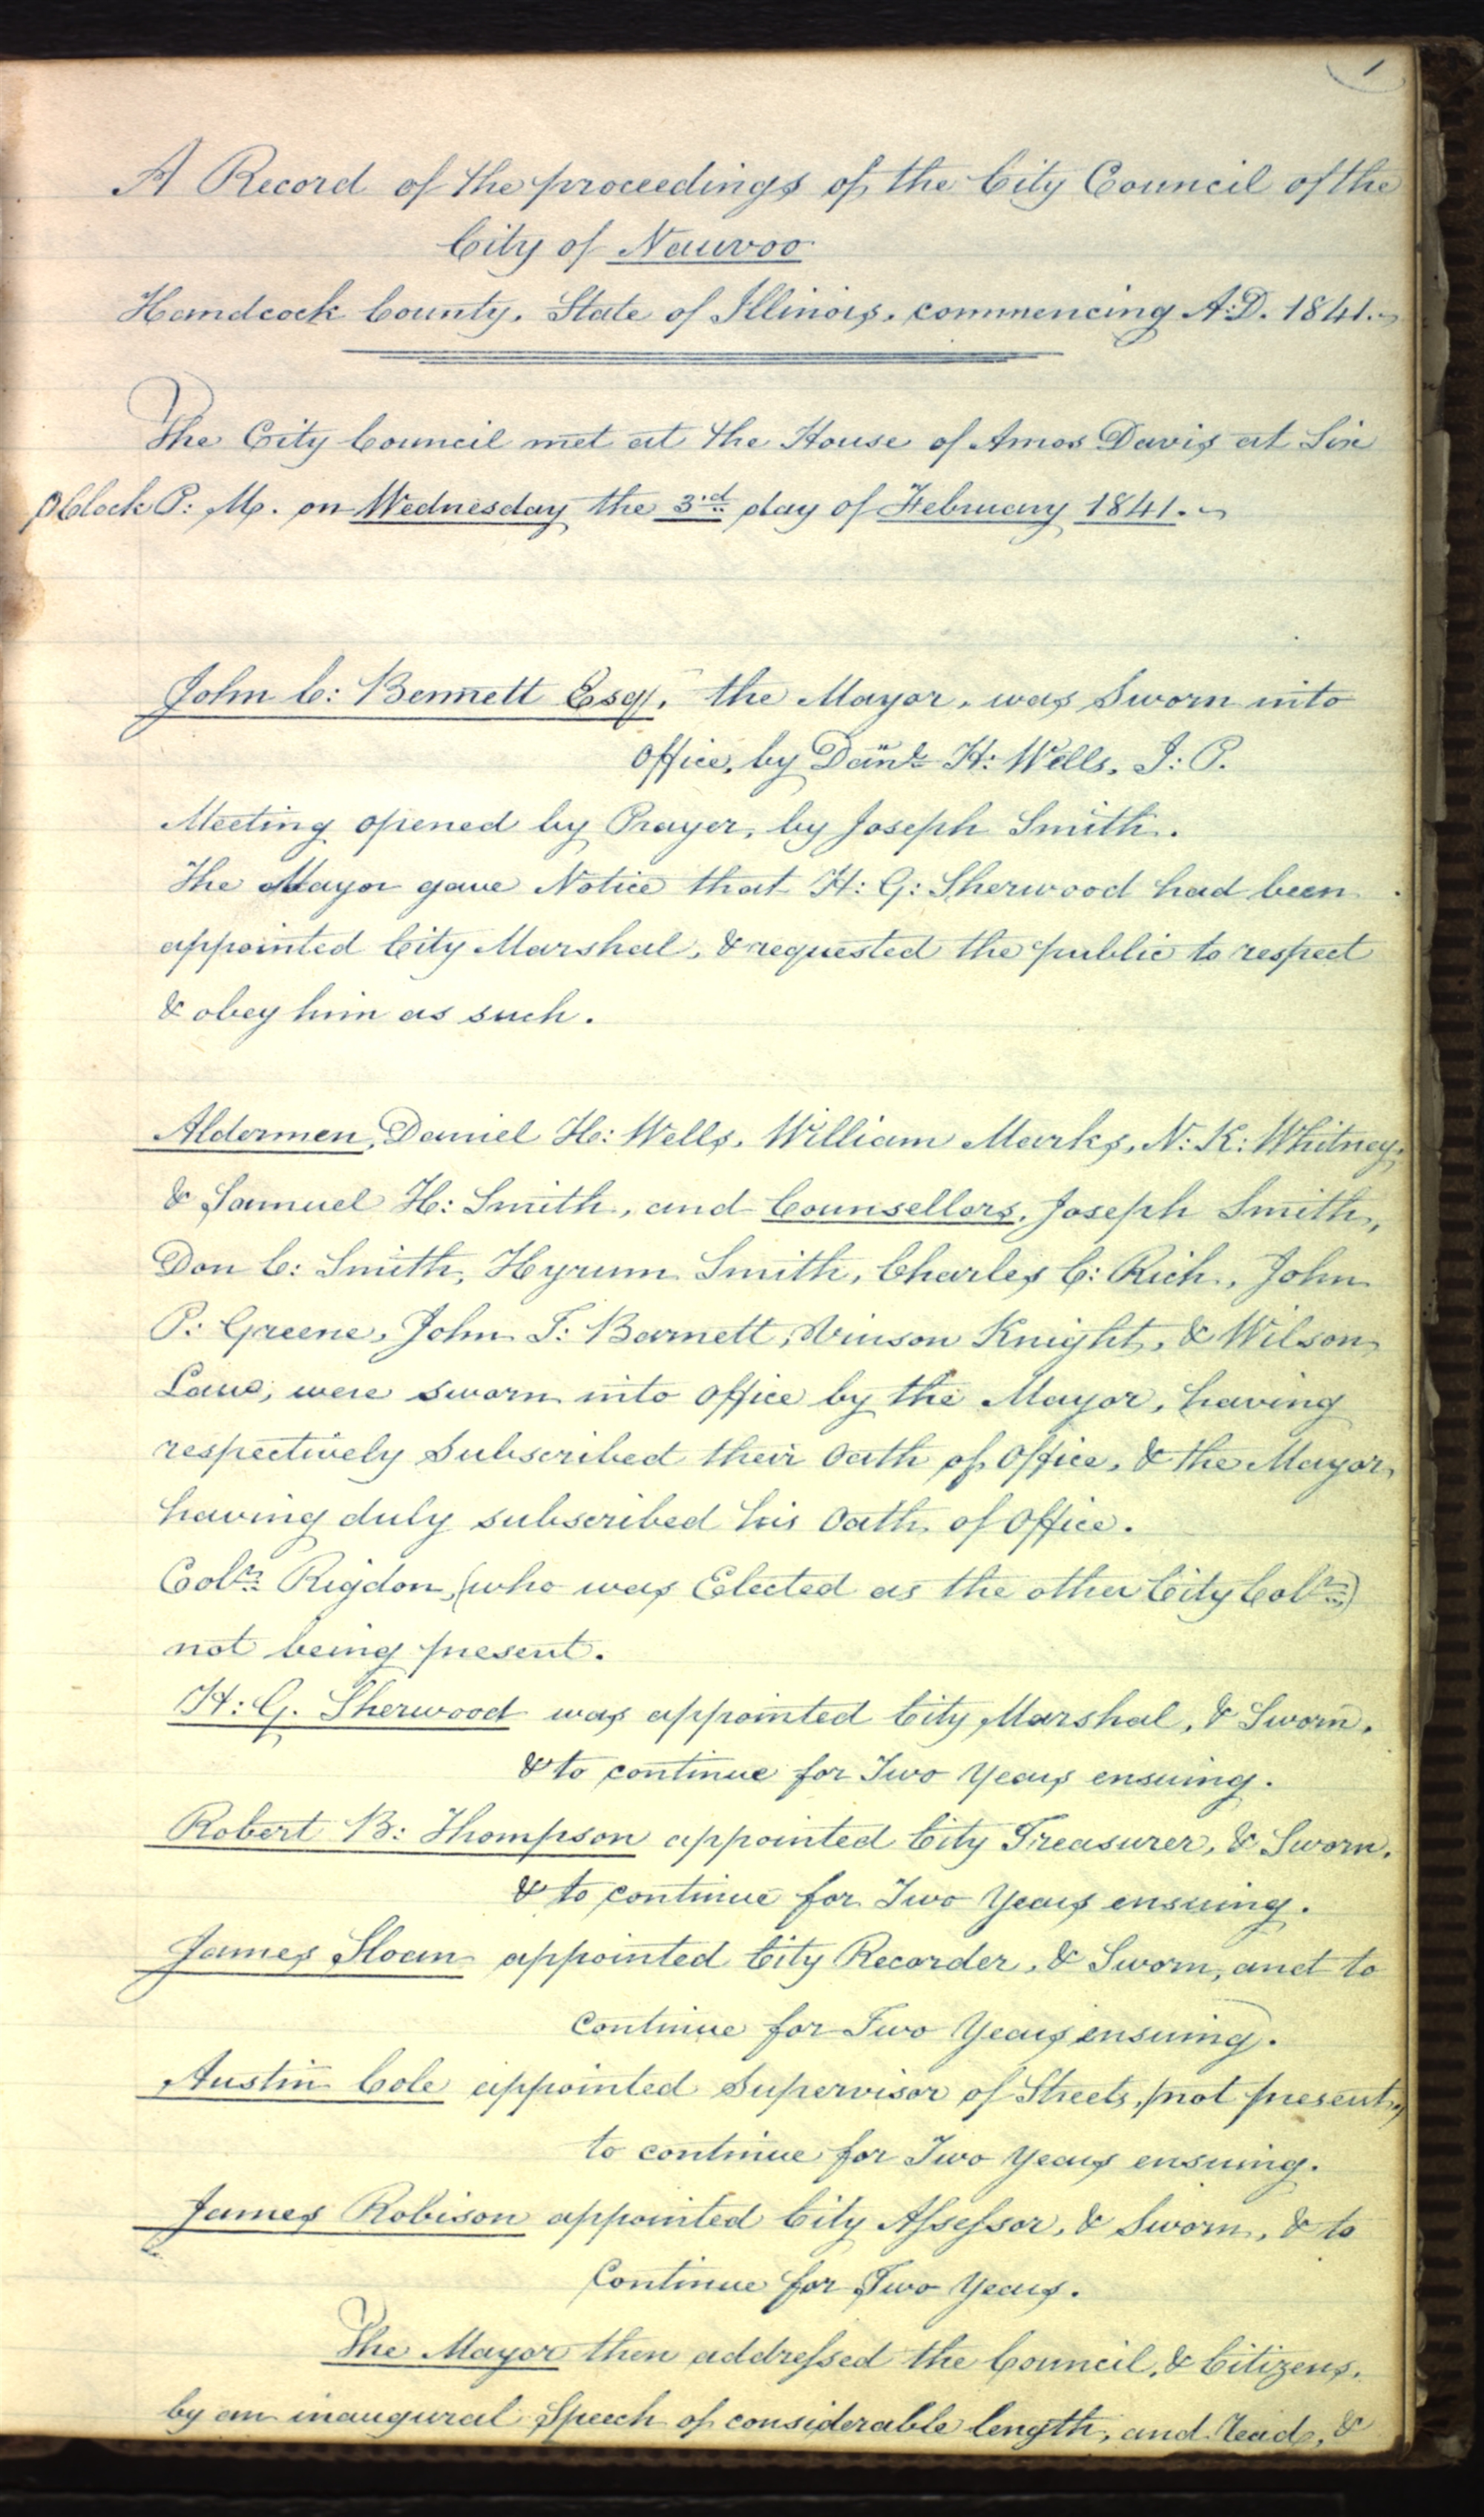 1
A Record of the proceedings of the City Council of the
City of Nauvoo
Handcock County, State of Illinois, commencing A:D. 1841.
The City Council met at the House of Amos Davis at Six
OClock P: M. on Wednesday the 3rd day of February 1841.
John C: Bennett Esqr, the Mayor, was Sworn into
Office, by Danl H: Wells, J: P.
Meeting opened by Prayer, by Joseph Smith.
The Mayor gave Notice that H: G: Sherwood had been
appointed City Marshal, & requested the public to respect
& obey him as such.
Aldermen, Daniel H: Wells, William Marks, N: K: Whitney,
& Samuel H: Smith, and Counsellors, Joseph Smith,
Don C: Smith, Hyrum Smith, Charles C: Rich, John
P: Greene, John T: Barnett, Vinson Knight, & Wilson
Law, were sworn into office by the Mayor, having
respectively Subscribed their Oath of Office, & the Mayor
having duly subscribed his Oath of Office.
Colr Rigdon, (who was Elected as the other City Colr)
not being present.
H: G. Sherwood was appointed City Marshal, & Sworn,
& to continue for Two Years ensuing.
Robert B: Thompson appointed City Treasurer, & Sworn,
& to continue for Two Years ensuing.
James Sloan appointed City Recorder, & Sworn, and to
continue for Two Years ensuing.
Austin Cole appointed Supervisor of Streets, (not present,)
to continue for Two Years ensuing.
James Robison appointed City Assessor, & Sworn, & to
Continue for Two Years.
The Mayor then addressed the Council, & Citizens,
by an inaugural Speech of considerable length, and read, &